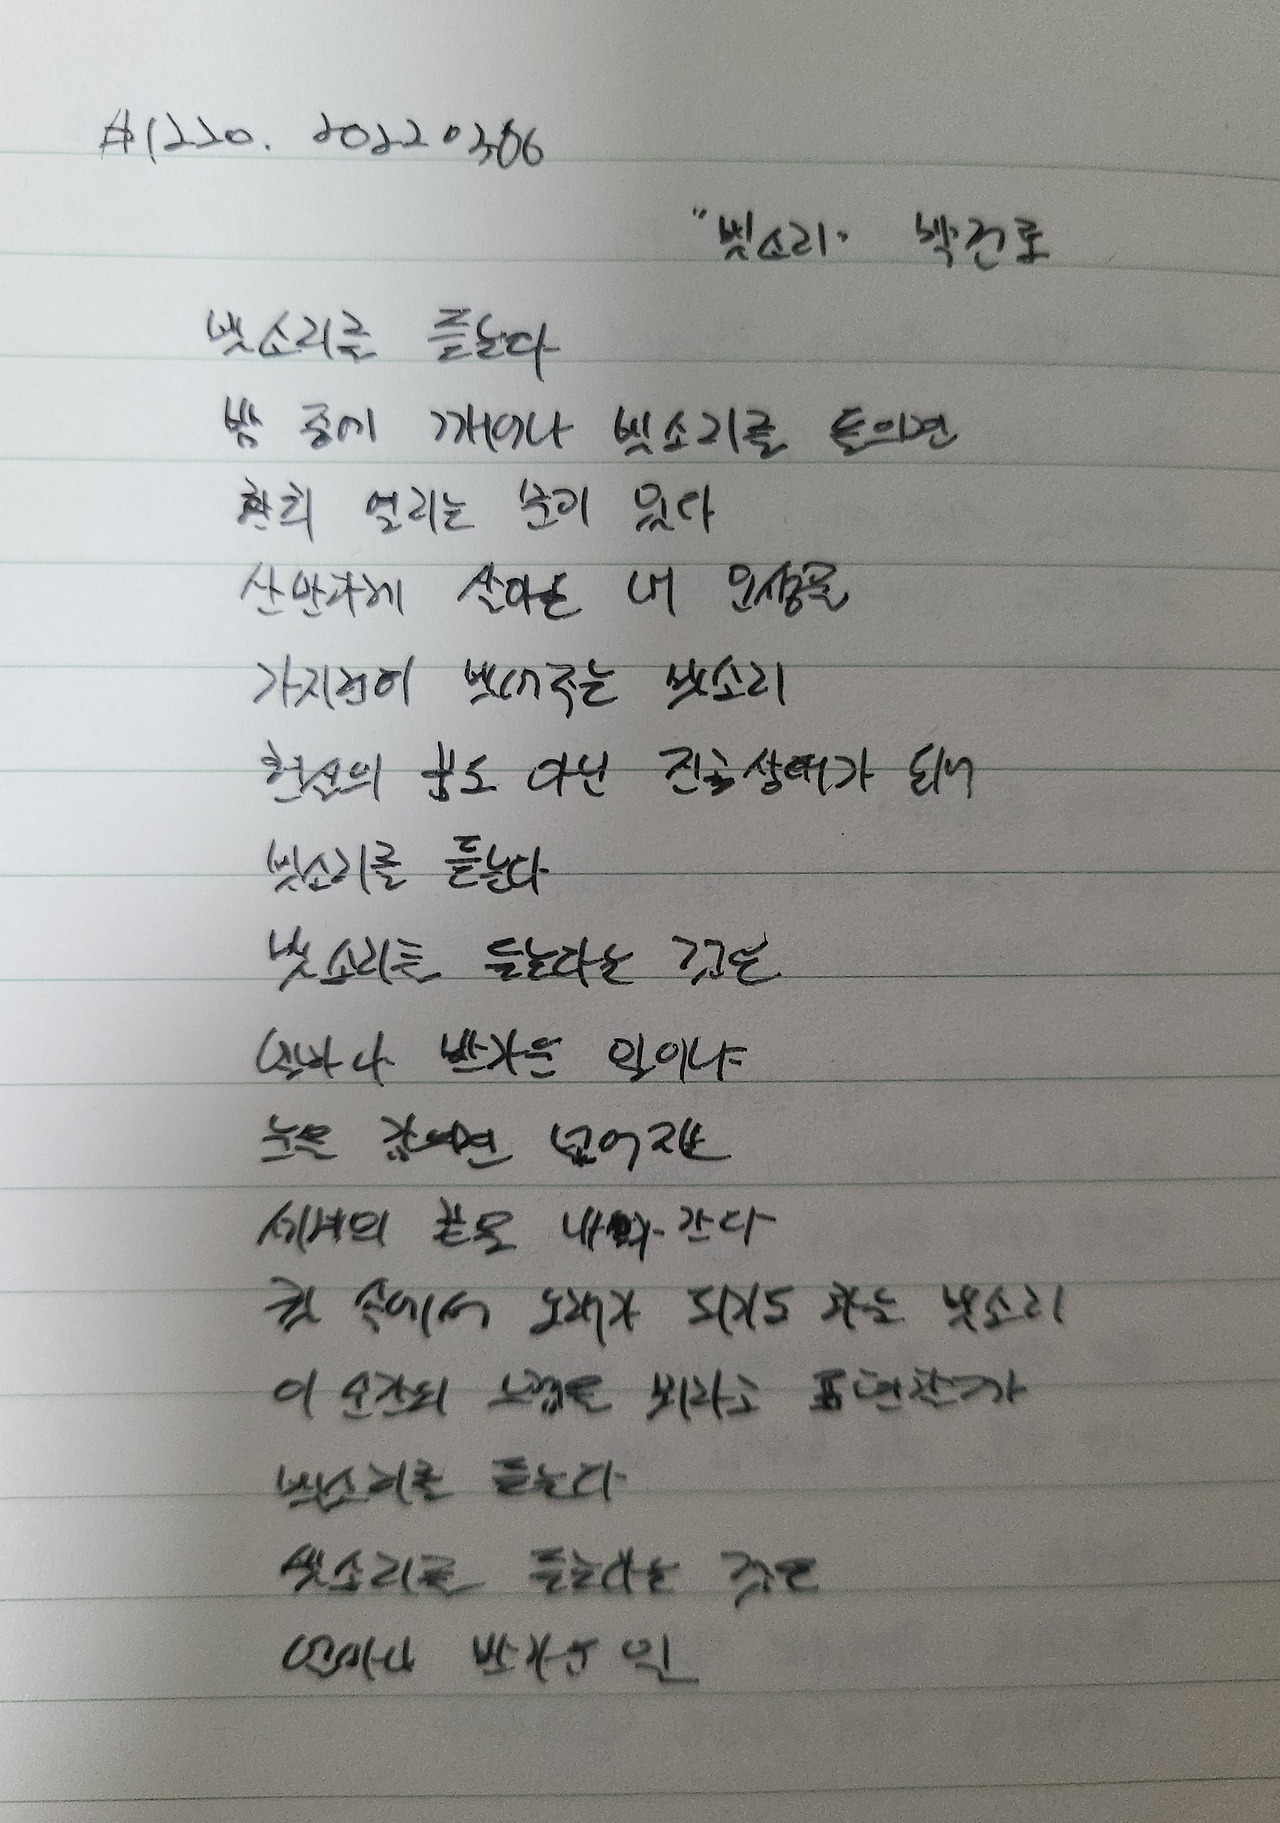 #1220. 20220306
"빗소리" 박건호
빗소리를 듣는다
밤 중에 깨어나 빗소리를 들으면
환희 열리는 문이 있다
산만하게 살아온 내 인생을
가지런히 빗어주는 빗소리
현실의 꿈도 아닌 진공상태가 되어
빗소리를 듣는다
빗소리를 듣는다는 것은
얼마나 반가운 일이냐
눈을 감으면 넓어지는
세계의 끝을 내가 간다
귓 속에서 노래가 되기도 하는 빗소리
이 순간의 느낌을 뭐라고 표현할까
빗소리를 듣는다
빗소리를 듣는다는 것은
얼마나 반가운 일